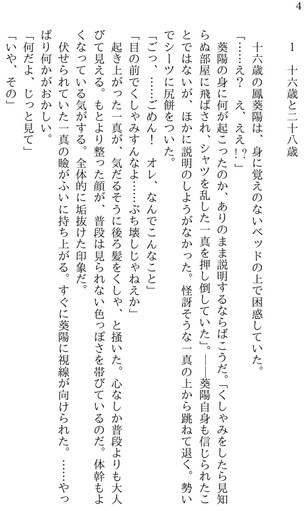 4
1　十六歳と二十八歳
　十六歳の鳳葵陽は、身に覚えのないベッドの上で困惑していた。
「……え？　え、ええ！？」
　葵陽の身に何が起こったのか、ありのまま説明するならばこうだ。「くしゃみをしたら見知
らぬ部屋に飛ばされ、シャツを乱した一真を押し倒していた」。――葵陽自身も信じられたこ
とではないが、ほかに説明のしようがなかった。怪訝そうな一真の上から跳ねて退く。勢い
でシーツに尻餅をついた。
「ごっ、……ごめん！　オレ、なんでこんなこと」
「目の前でくしゃみすんなよ……ぶち壊しじゃねえか」
　起き上がった一真が、気だるそうに後ろ髪をくしゃ、と掻いた。心なしか普段よりも大人
びて見える。もとより整った顔が、普段は見られない色っぽさを帯びているのだ。体幹もよ
くなっている気がする。全体的に垢抜けた印象だ。
　伏せられていた一真の瞼がふいに持ち上がる。すぐに葵陽に視線が向けられた。……やっ
ぱり何かがおかしい。
「何だよ、じっと見て」
「いや、その」